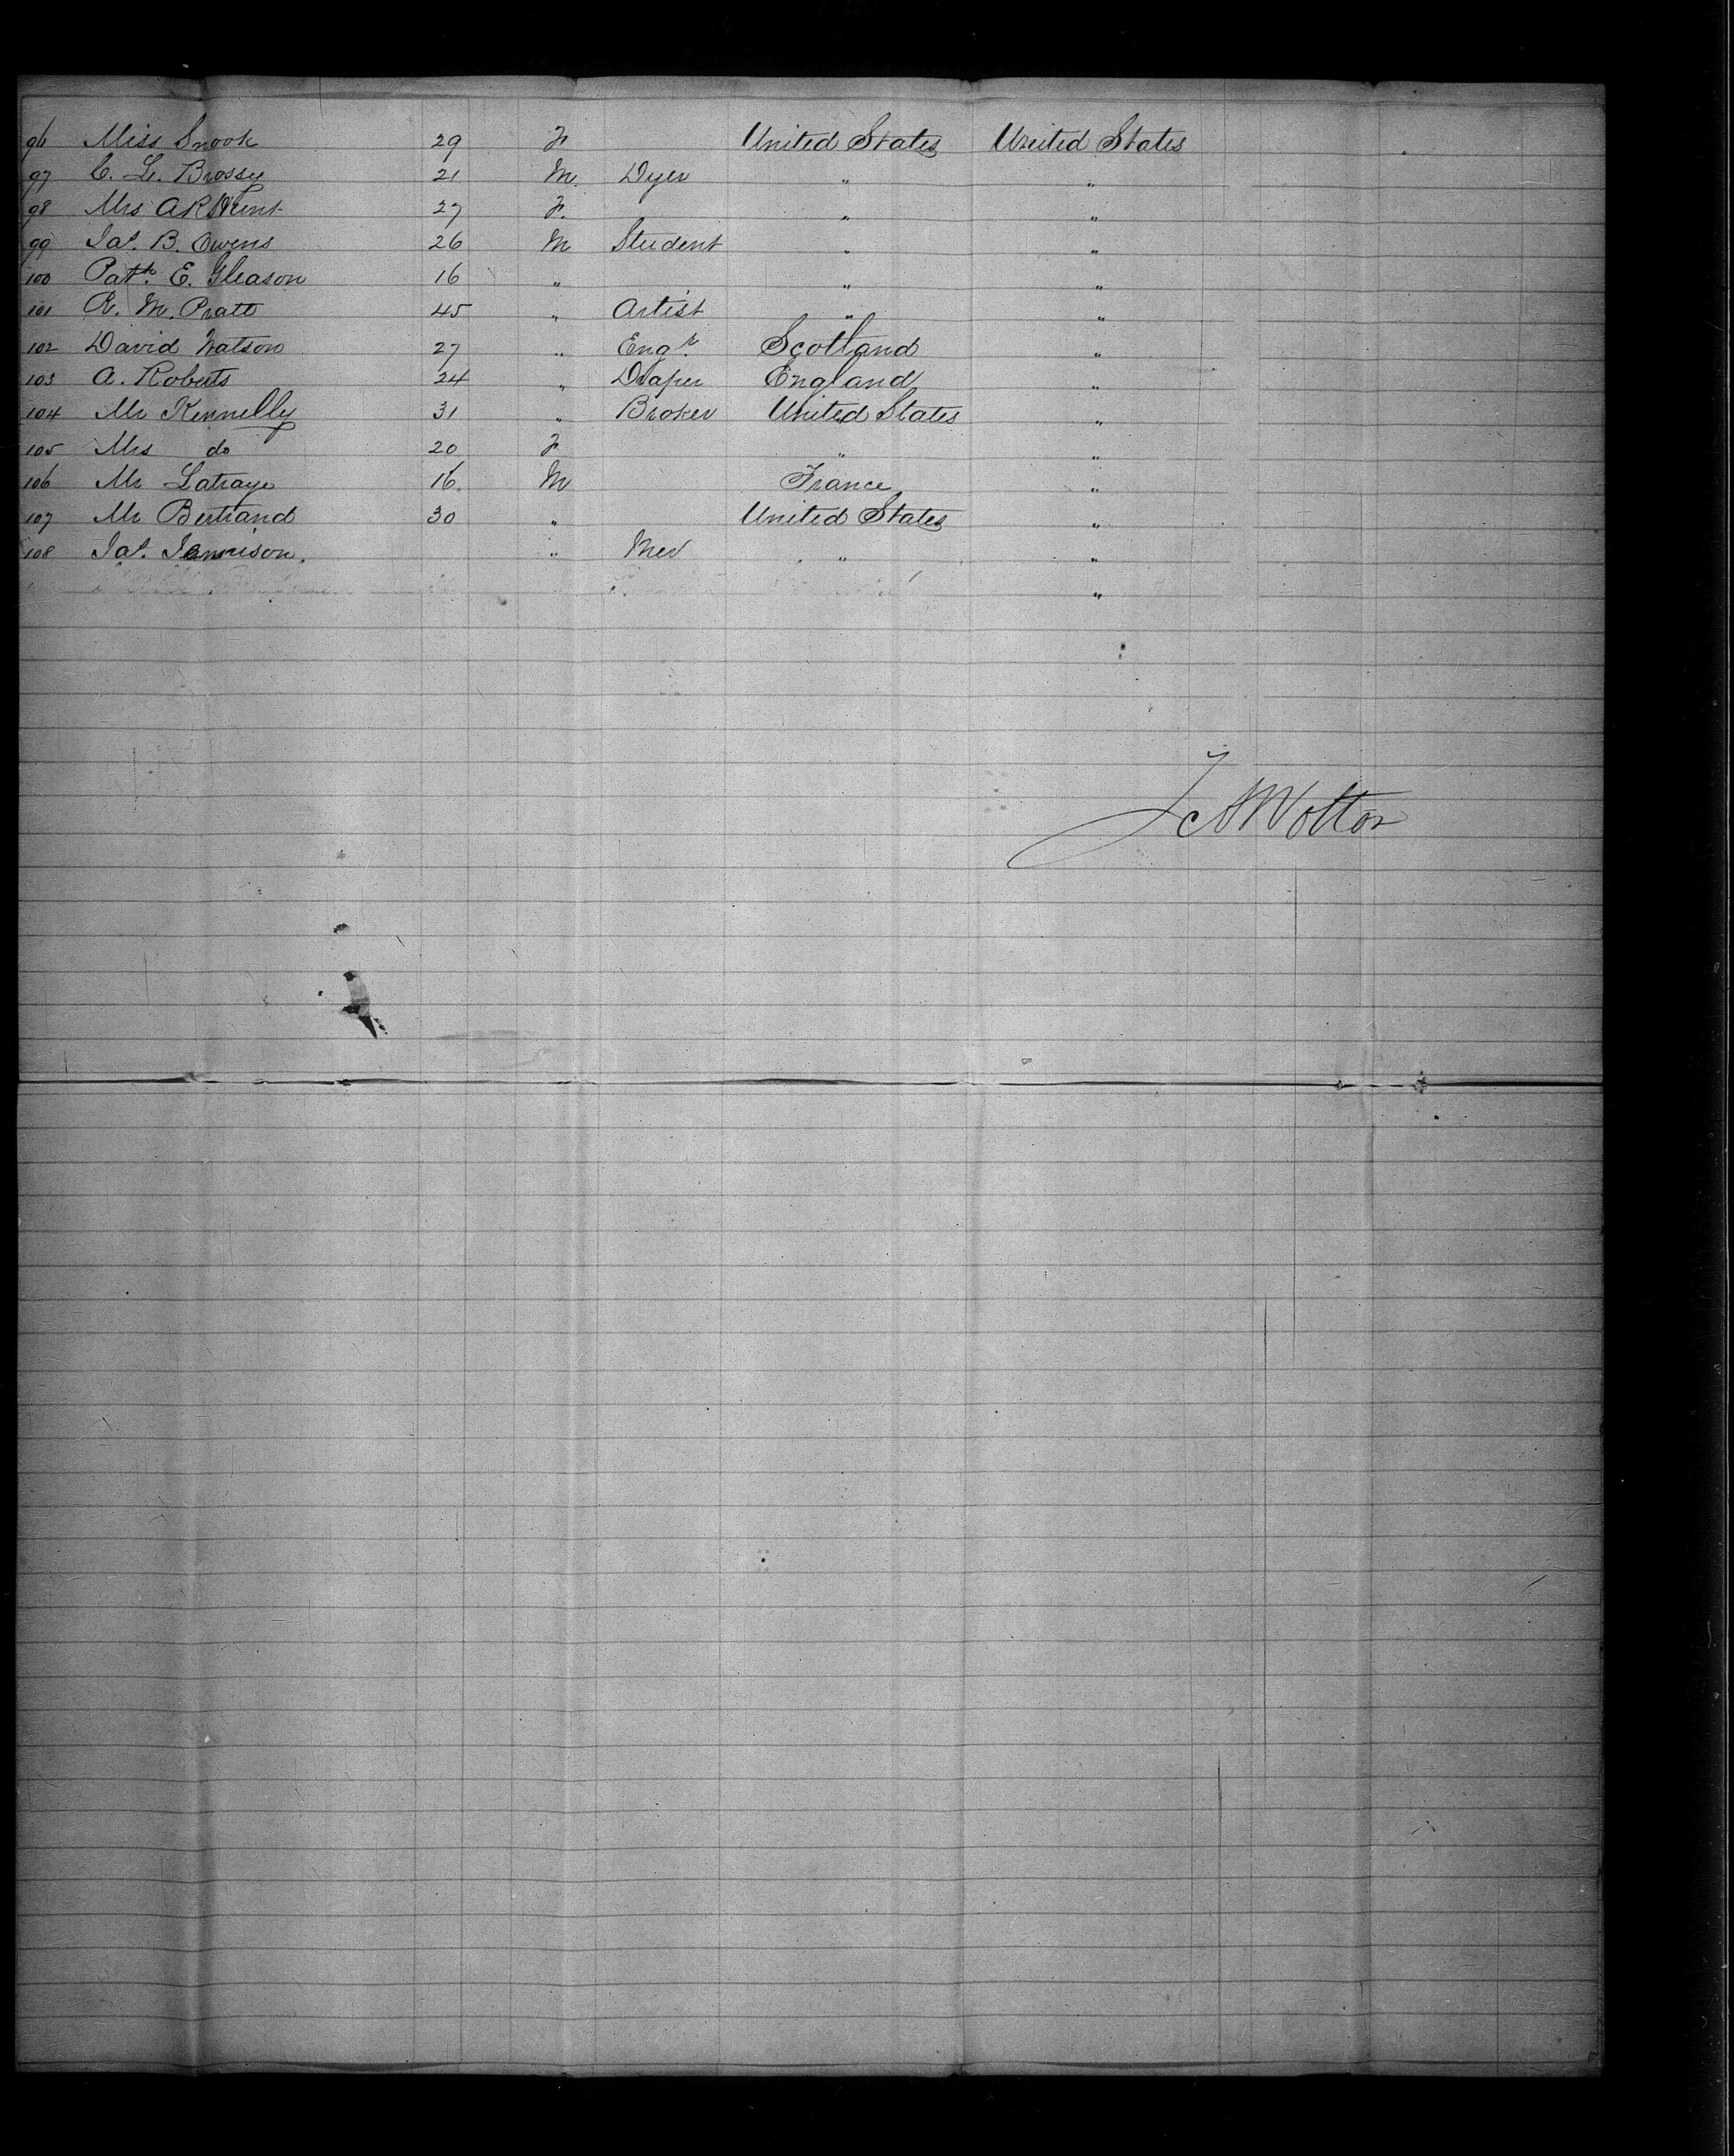 96 Miss Snook 29 F United States United States
97 C. L. Brossy 21 M. Dyer " "
98 Mrs A R Hunt 27 F. " "
99 Jas. B. Owens 26 M Student " "
100 Patk. E. Gleason 16 " " "
101 R. M. Pratt 45 " Artist " "
102 David Watson 27 " Engr. Scotland "
103 A. Roberts 24 " Draper England "
104 Mr Kennelly 31 " Broker United States "
105 Mrs do 20 F " "
106 Mr 16 M France "
107 Mr Bertrand 30 " United States "
108 Jas. Jamison. " Mer " "
"
Wotton